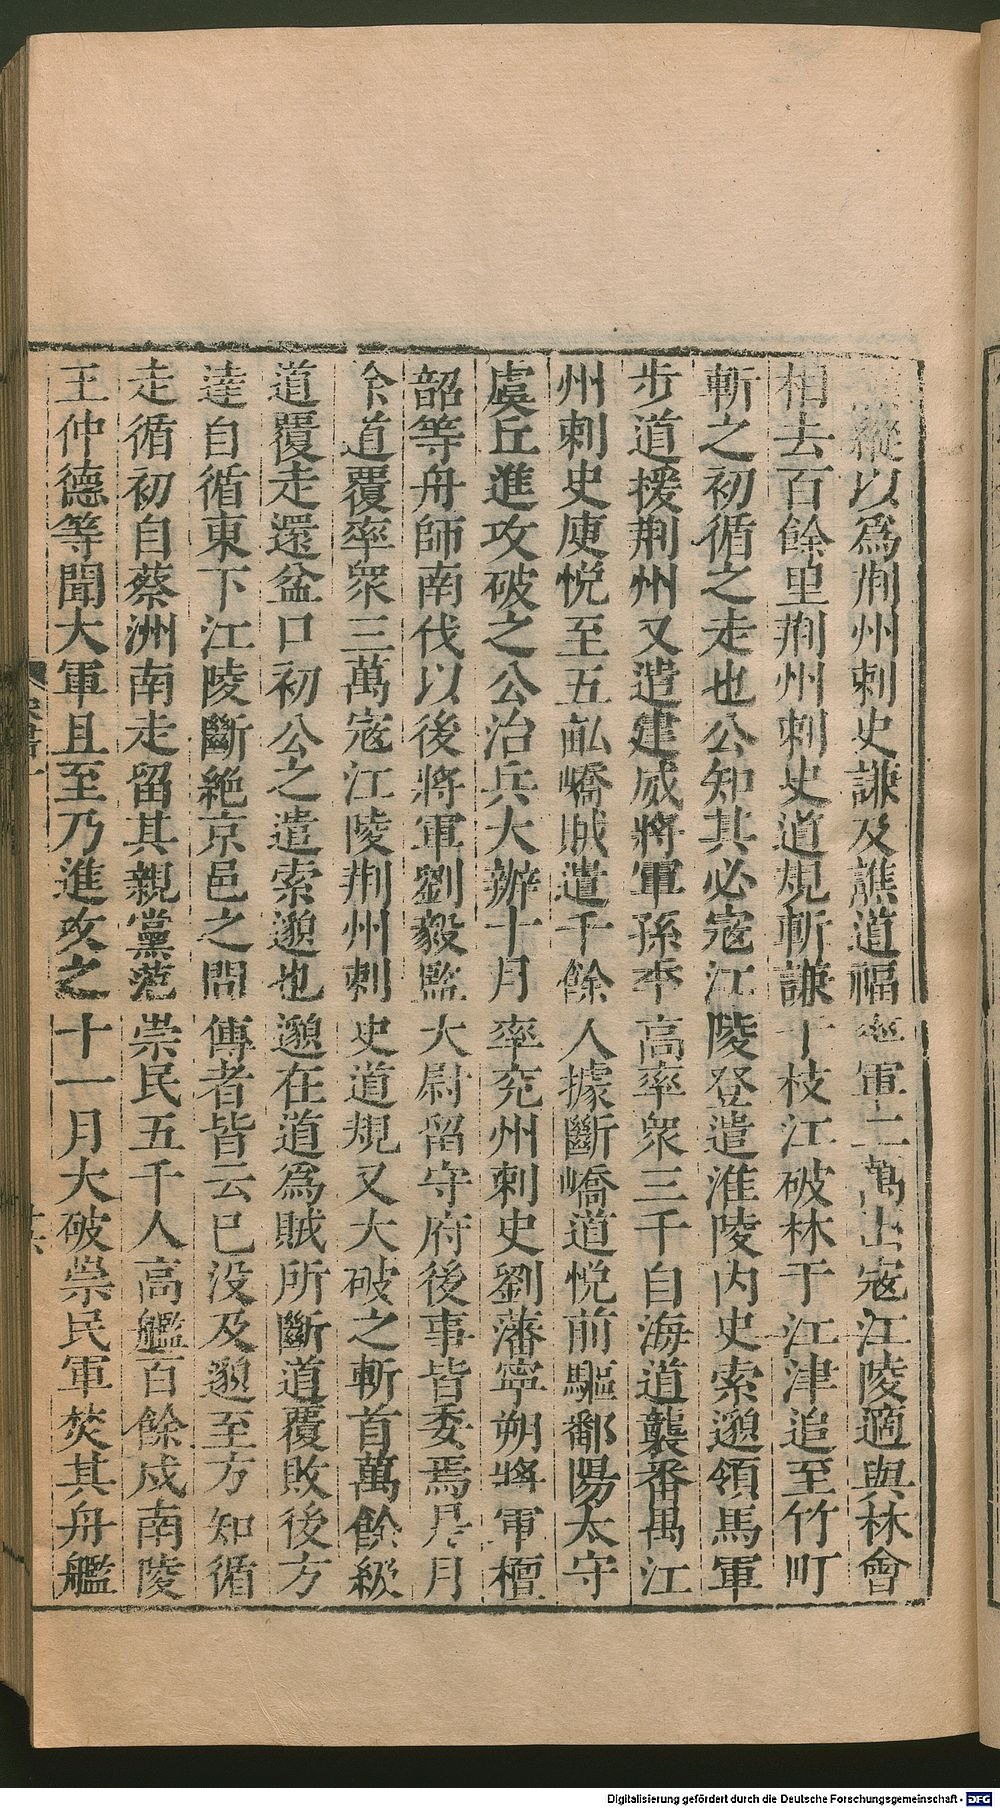 縱以爲荆州刺史謙及譙道福率軍二萬出寇江陵適與林會
相去百餘里荆州刺史道規斬謙于枝江破林于江津追至竹町
斬之初循之走也公知其必寇江陵登遣淮陵内史索邈領馬軍
步道援荆州又遣建威將軍孫季高率衆三千自海道襲番禺江
州刺史庾悦至五畝嶠賊遣千餘人據斷嶠道悦前驅鄱陽太守
虞丘進攻破之公治兵大辦十月率兖州刺史劉藩寧朔將軍檀
韶等舟師南伐以後將軍劉毅監大尉留守府後事皆委焉是月
徐道覆率衆三萬寇江陵荆州刺史道規又大破之斬首萬餘級
道覆走還盆口初公之遣索邈也邈在道爲賊所斷道覆敗後方
達自循東下江陵斷絶京邑之問傳者皆云已没及邈至方知循
走循初自蔡洲南走留其親黨范崇民五千人高艦百餘戍南陵
王仲德等聞大軍且至乃進攻之十一月大破崇民軍焚其舟艦
Digitalisierung gefördert durch die Deutsche Forschungsgemeinschaft - DFG